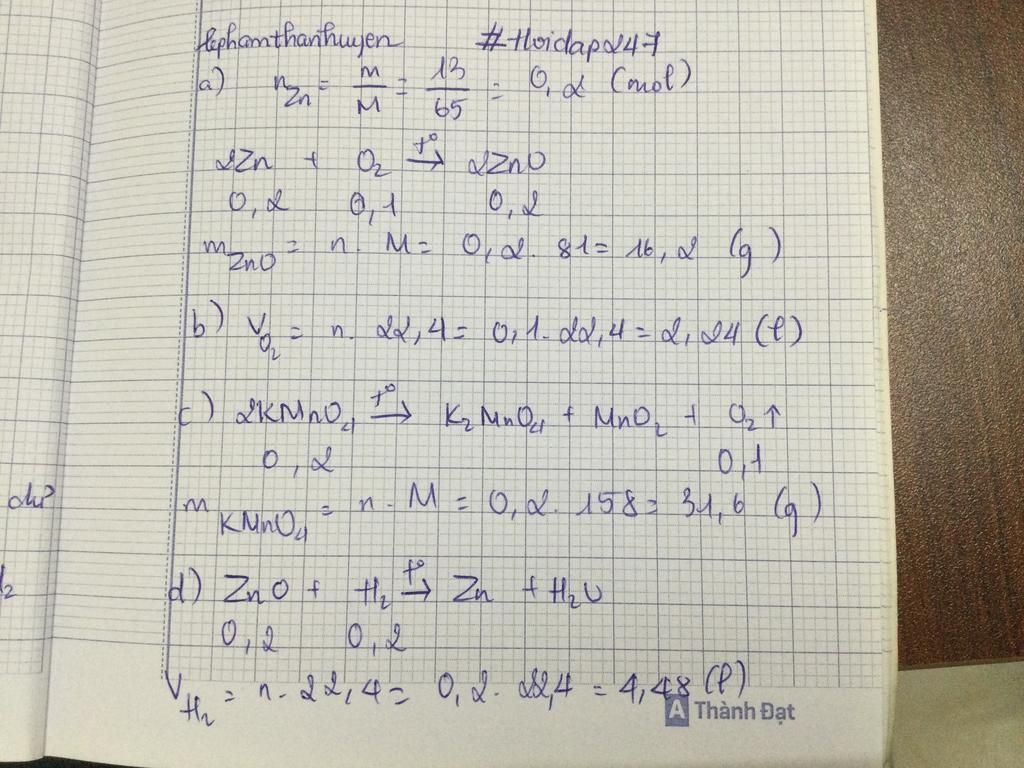 lephamthanhuyen #Hoidap247
a) n Zn = m/M = 13/65 = 0,2 (mol)
2Zn + O2 t°→ 2ZnO
0,2 0,1 0,2
m ZnO = n. M = 0,2. 81 = 16,2 (g)
b) V O2 = n. 22,4 = 0,1. 22,4 = 2,24 (l)
c) 2KMnO4 t°→ K2MnO4 + MnO2 + O2↑
0,2 0,1
m KMnO4 = n. M = 0,2. 158 = 31,6 (g)
d) ZnO + H2 t°→ Zn + H2O
0,2 0,2
V H2 = n. 22,4 = 0,2. 22,4 = 4,48 (l)
A Thành Đạt